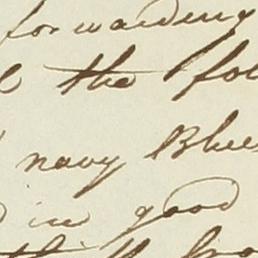 forwarding
the fol
navy Blue
in good